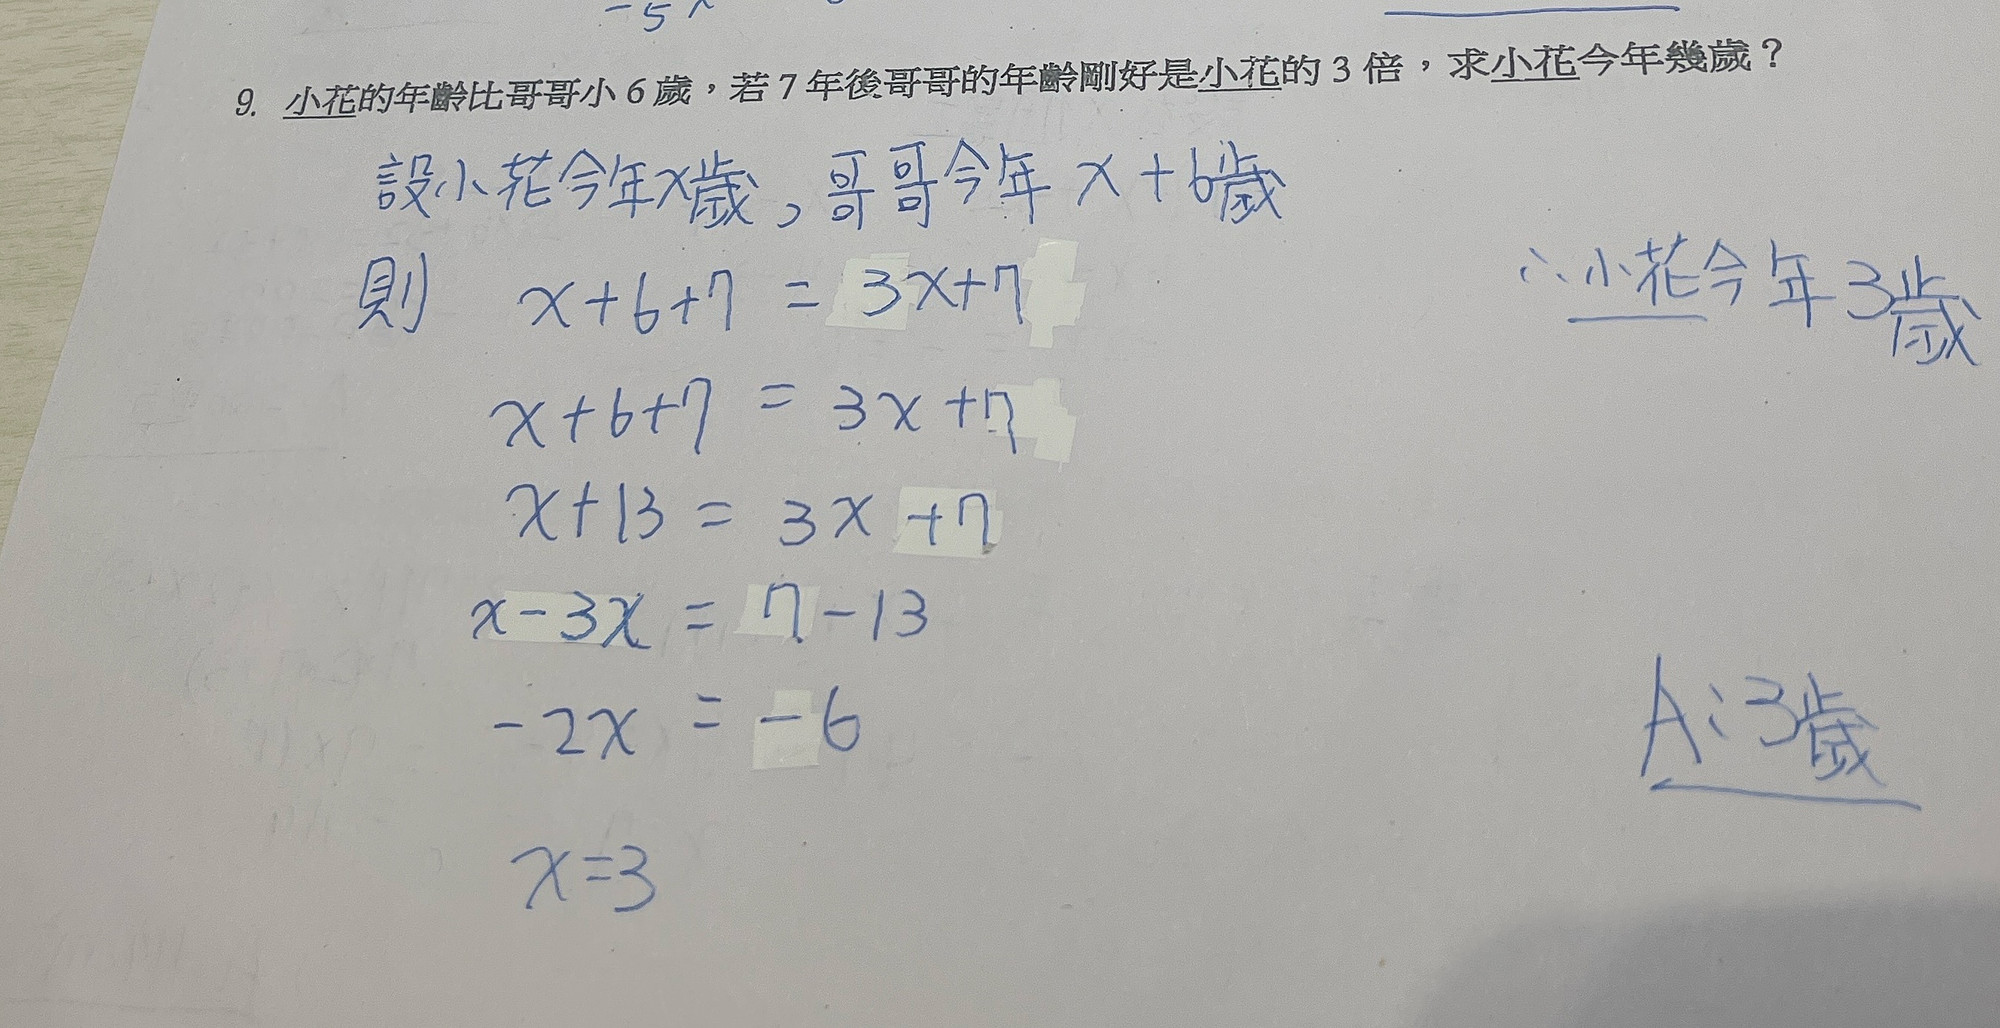 -5x
9. 小花的年齡比哥哥小6歲，若7年後哥哥的年齡剛好是小花的3倍，求小花今年幾歲？
設小花今年x歲，哥哥今年x+6歲
則 x+6+7 = 3x+7
∴小花今年3歲
x+6+7 = 3x+7
x+13 = 3x+7
x-3x = 7-13
-2x = -6
A:3歲
x=3